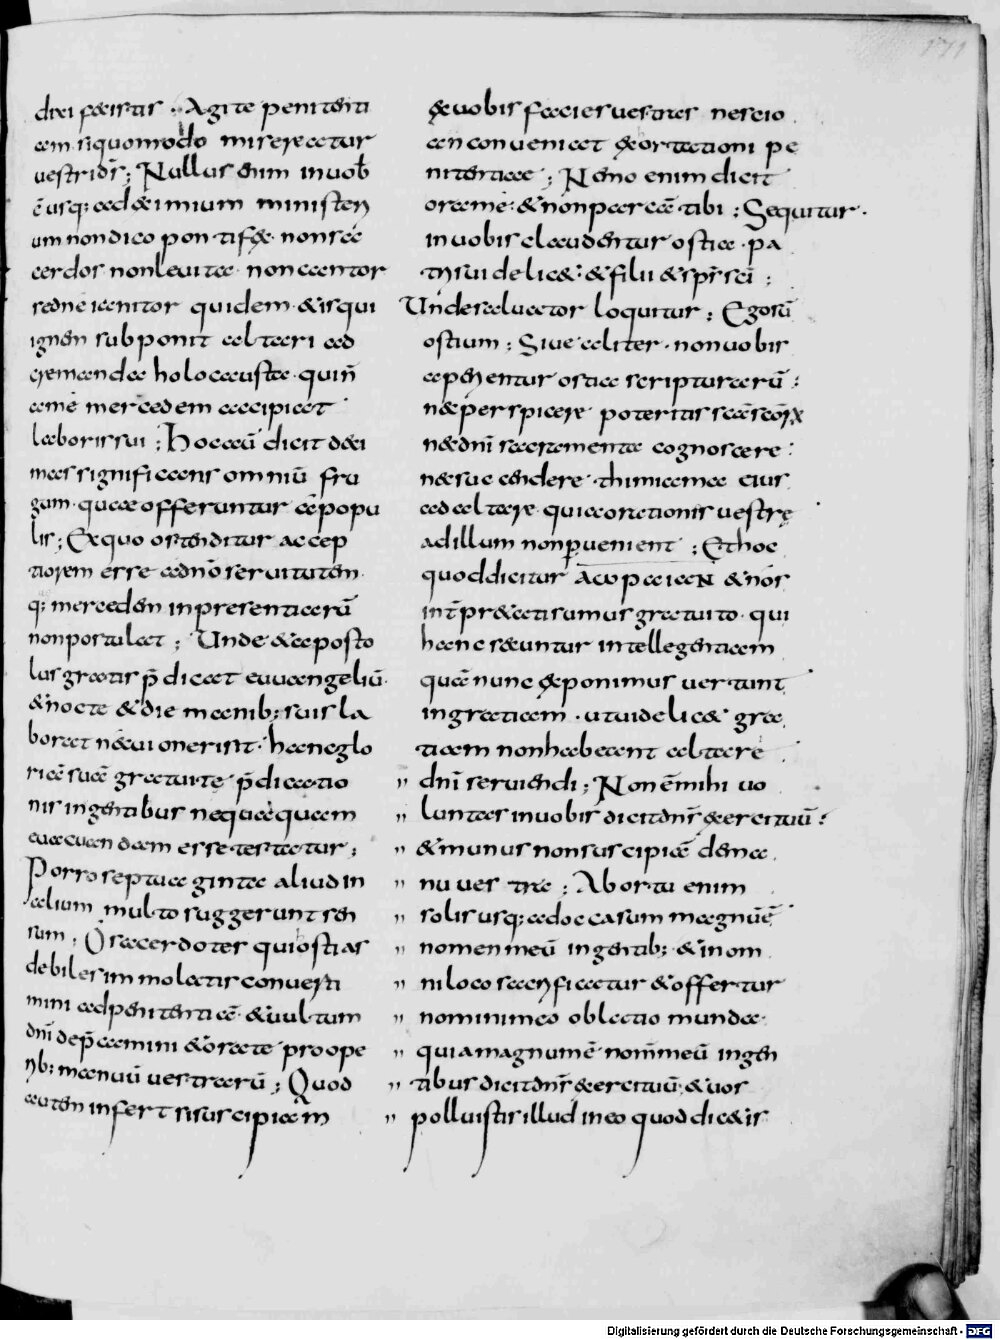 171
dixi fecistis. Agite peniten̄ti
am si quomodo misereatur
vestri d̄s; Nullus enim in vob̄
ē usq; ad eximium ministeri
um non dico pontifex non sa
cerdos non levita non cantor
sed ne ianitor quidem & is qui
ignem subponit altari ad
cremanda holocausta quin̄
a me mercedem accipiat
laboris sui; Hoc aū dicit dei
mei significans omniū fru
gum quae offeruntur a pop
lis; Ex quo ostenditur accep
tiorem esse ad nō servitutem
q; mercedem in presentiarū
non postulat; Unde & aposto
lus gratis p̄dicat euuangeliū
& nocte & die manib; suis la
borat ne cui oneri sit hanc glo
riā suā gratuitę p̄dicatio
nis in gentibus nequaquam
evacuandam esse testatur;
Porro septuaginta aliud in
alium multo suggerunt sen
sum; O sacerdotes qui ostias
debiles immolatis convérti
mini ad penitentiā & vultum
dn̄i dep̄camini & orate pro ope
rib; manuū vestrarū; Quod
autem infert si suscipiam
ex vobis facies vestras nescio
an conveniat exortationi pe
nitentiae; Nemo enim dicit
ora me & non parcā tibi; Sequitur
in vobis claudentur ostia pa
tris videlicet & filii & sp̄s sc̄i;
Unde salvator loquitur; Ego sū
ostium; Sive aliter non vobis
aperientur ostia scripturarū;
nec perspicere poteritis sc̄a sc̄orū
nec dn̄i sacramenta cognoscere;
nec succendere thimiama eius
ad altare quia orationis vestrę
ad illum non p̄venient; Et hoc
quod dicitur ΔωΡΕΑΝ & nos
int̄pretati sumus gratuito qui
hanc secuntur intellegentiam
quā nunc exponimus vertunt
in gratiam ut videlicet gra
tiam non habeant altare
" dn̄i serviendi; Non ē mihi vo
" luntas in vobis dicit dn̄s exercituū;
" & munus non suscipiā de ma
" nu vestra; Ab ortu enim
" solis usq; ad occasum magnū ē
" nomen meū in gentib; & in om
" ni loco sacrificatur & offertur
" nomini meo oblatio munda
" quia magnum ē nom̄ meū in gen
" tibus dicit dn̄s exercituū & vos
" polluistis illud in eo quod dicitis
Digitalisierung gefördert durch die Deutsche Forschungsgemeinschaft - DFG